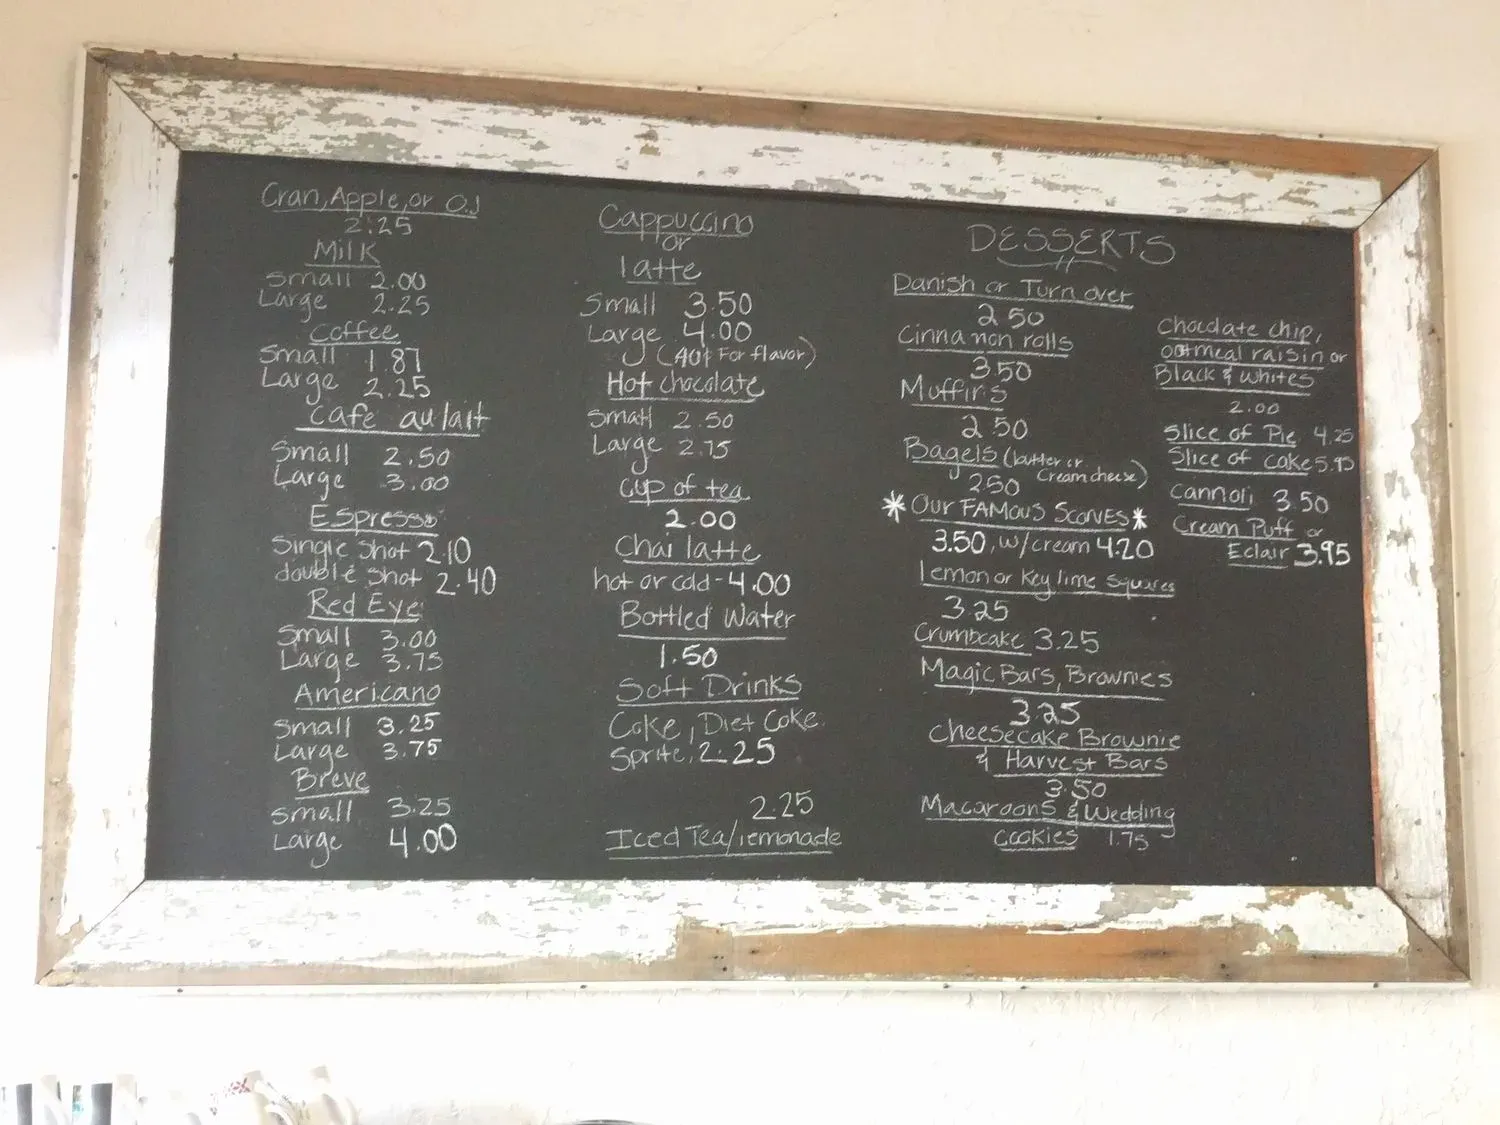 Cran, Apple, or O.J
2.25
Milk
Small 2.00
Large 2.25
Coffee
Small 1.87
Large 2.25
Cafe au lait
Small 2.50
Large 3.00
Espresso
Single shot 2.10
double shot 2.40
Red Eye
Small 3.00
Large 3.75
Americano
Small 3.25
Large 3.75
Breve
Small 3.25
Large 4.00
Cappuccino
or
latte
Small 3.50
Large 4.00
(40¢ For flavor)
Hot chocolate
Small 2.50
Large 2.75
Cup of tea
2.00
Chai latte
hot or cold - 4.00
Bottled Water
1.50
Soft Drinks
Coke, Diet Coke
Sprite, 2.25
2.25
Iced Tea/lemonade
DESSERTS
Danish or Turn over
2 50
Cinnamon rolls
3.50
Muffins
2 50
Bagels (butter or
Cream cheese)
250
* Our FAMOUS SCONES *
3.50, w/cream 4.20
Lemon or Key lime Squares
3.25
Crumbcake 3.25
Magic Bars, Brownies
3.25
Cheesecake Brownie
& Harvest Bars
3.50
Macaroons & Wedding
cookies 1.75
Chocolate chip,
oatmeal raisin or
Black & whites
2.00
Slice of Pie 4.25
Slice of cake 5.95
Cannoli 3.50
Cream Puff or
Eclair 3.95